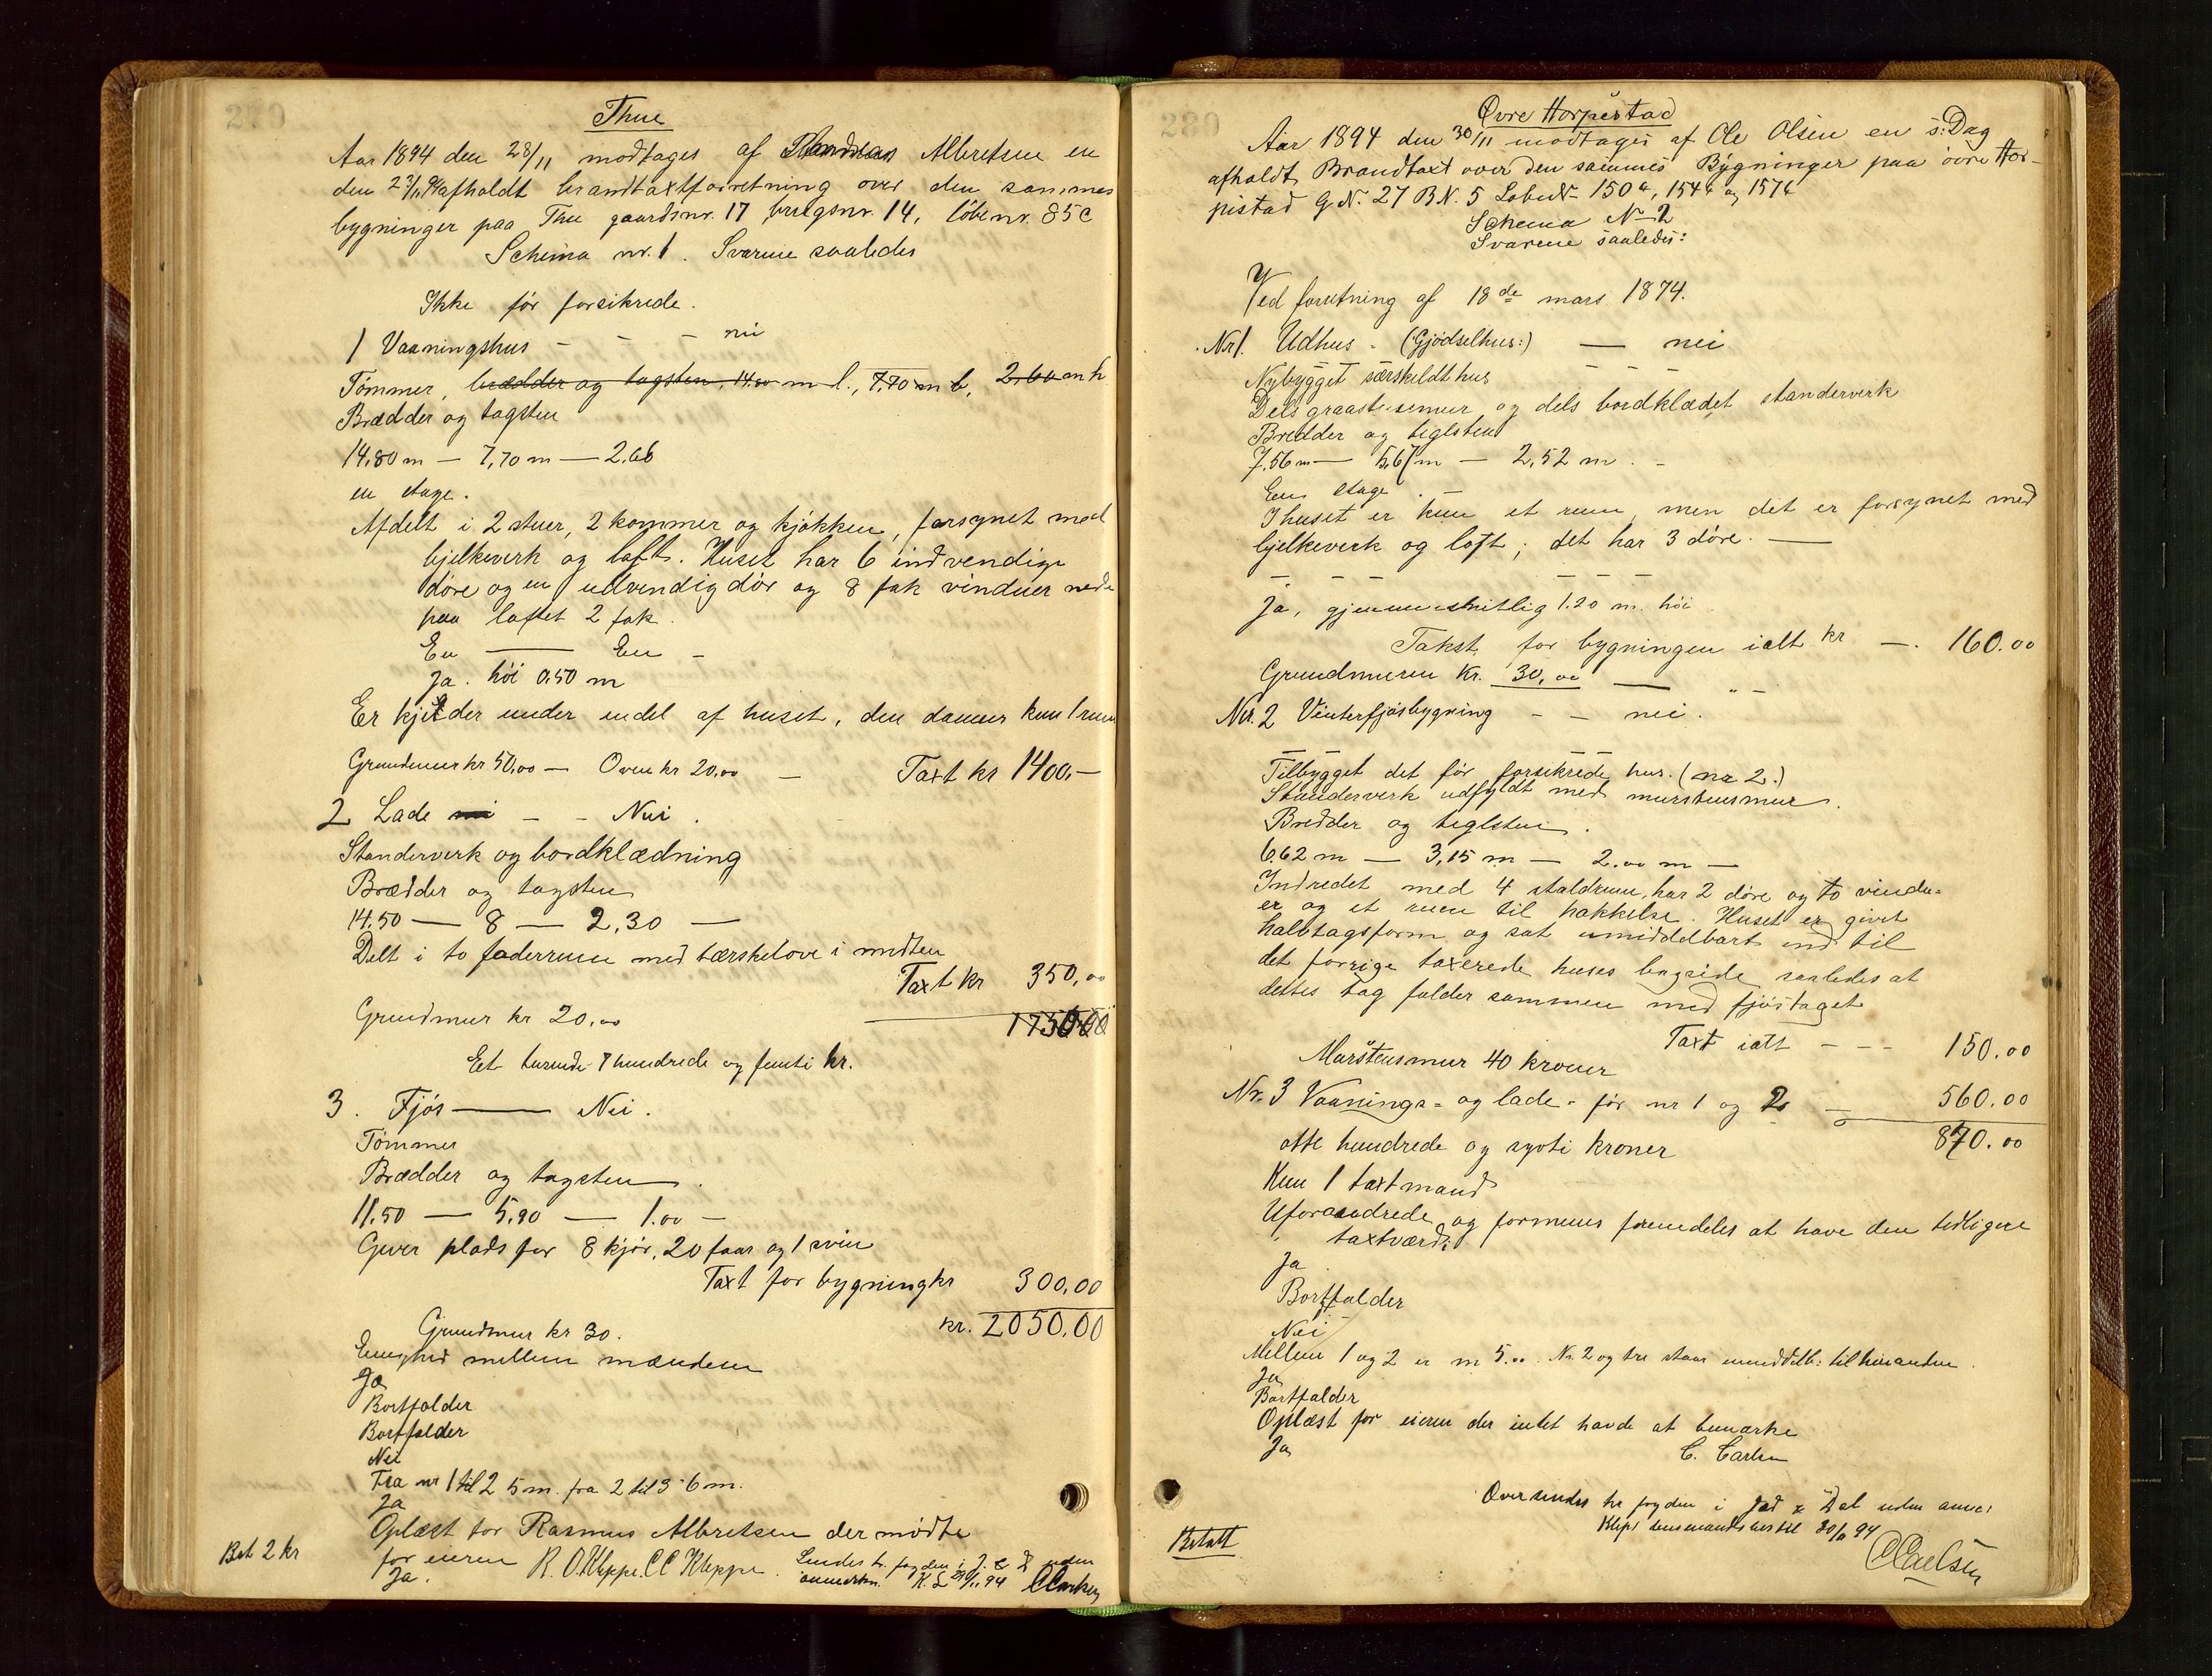 279
Thue
Aar 1894 den 28/11 modtages af Andreas Albretsen en
den 23/11 94 afholdt brandtaxtforretning over den sammes
bygninger paa Thu gaardsnr. 17 brugsnr. 14, löbenr. 85c
Schema nr. 1. Svarene saaledes
Ikke før forsikrede.
1 Vaaningshus - - - nei
Tømmer, brædder og tagsten 14.80 m l., 7,70 m b, 2,60 m h
Brædder og tagsten
14,80 m — 7,70 m — 2,66
en etage.
Afdelt i 2 stuer, 2 kammer og kjøkken, forsynet med
bjelkeverk og loft. Huset har 6 indvendige
døre og en udvendig dør og 8 fak vinduer nede
paa loftet 2 fak.
En — En -
Ja. høi 0,50 m
Er kjelder under endel af huset, den danner kun 1 rum
Grundmur kr 50,00 — Oven kr 20,00 — Taxt kr 1400,-
2 Lade nei - - Nei.
Standerverk og bordklædning
Brædder og tagsten
14,50 — 8 — 2,30 —
Delt i to foderrum med tærskelove i midten
Taxt kr 350,00
Grundmur kr 20,00 1750,00
Et tusinde 7 hundrede og femti kr.
3. Fjøs — Nei.
Tømmer
Brædder og tagsten.
11,50 — 5,90 — 1,00 —
Giver plads for 8 kjør, 20 faar og 1 svin
Taxt for bygning kr 300,00
Grundmur kr 30. kr. 2050,00
Enighed mellem mændene
Ja
Bortfalder
Bortfalder
Nei
Fra nr 1 til 2 5 m. fra 2 til 3 - 6 m.
Ja
Oplæst for Rasmus Albretsen der mødte
for eieren R. O. Kleppe. C C Kleppe.
Bet 2 kr
Ja.
Sendes hr. fogden i J. & D uden
anmerkn. K. L 29/11 94 CCarlsen
280
Øvre Horpestad
Aar 1894 den 30/11 modtages af Ole Olsen en s: Dag
afholdt Brandtaxt over den sammes Bygninger paa øvre Hor-
pistad G. N. 27 B N. 5 Løbe N. 150a, 154a og 157a
Schema No 2
Svarene saaledes:
Ved forretning af 18de mars 1874.
Nr 1. Udhus - (Gjødselhus:) — nei
Nybygget særskildt hus - - -
Dels graastensmur og dels bordklædet standerverk
Bredder og teglsten
7,56 m — 5,67 m — 2,52 m. -
Een etage. —
I huset er kun et rum, men det er forsynet med
bjelkeverk og loft; det har 3 døre. —
Ja, gjennemsnitlig 1.20 m. høi
Takst for bygningen ialt kr —. 160.00
Grundmuren kr. 30,00 —
Nr. 2 Vinterfjøsbygning - - nei.
Tilbygget det før forsikrede hus. (nr 2.)
Standerverk udfyldt med murstensmur.
Bredder og teglsten.
6,62 m — 3,15 m — 2.00 m —
Indredet med 4 staldrum, har 2 døre og to vindu-
er og et rum til hakkelse. Huset er givet
halvtagsform og sat umiddelbart ind til
det forrige taxerede huses bagside saaledes at
dettes tag falder sammen med fjøstaget
Taxt ialt - - - 150.00
Murstensmur 40 kroner
Nr. 3 Vaanings- og lade - før nr 1 og 2 — 560.00
otte hundrede og sytti kroner 870.00
Kun 1 taxtmand
Uforandrede og formenes fremdeles at have den tidligere
taxtværdi
Ja
Bortfalder
Nei
Mellem 1 og 2 er m 5.00. Nr. 2 og tre staar umiddelb: til hinanden.
Ja
Bortfalder
Oplæst for eieren der intet havde at bemærke
Ja
C. Carlsen
Oversendes hr fogden i Jæd & Dal uden anm:
Klep lensmandsbestil 30/11 94
CCarlsen
Betalt